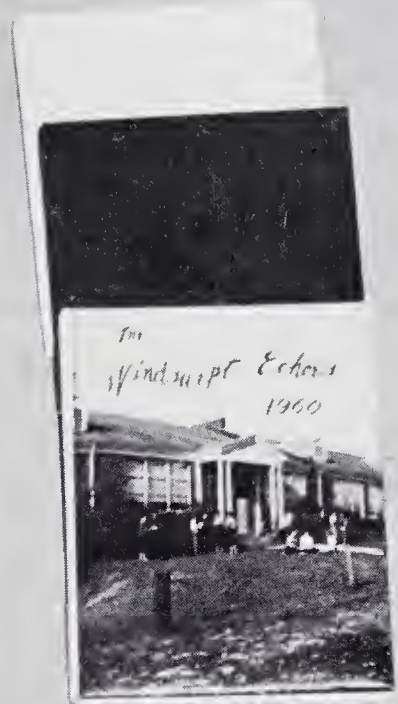 The
Windswept Echoes
1960